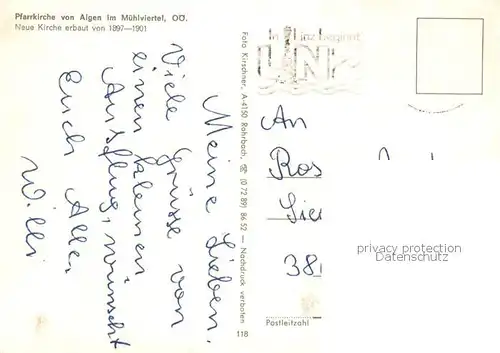 Pfarrkirche von Aigen im Mühlviertel, OÖ.
Neue Kirche erbaut von 1897—1901
Meine Lieben.
Viele Grüsse von
einen kleinen
Ausflug, wünscht
Euch Allen
Willi
Foto Kirschner, A-4150 Rohrbach, ☎ (0 72 89) 86 52 — Nachdruck verboten
118
In Linz beginnt
LINZ
An
Ros
38
privacy protection
Datenschutz
Postleitzahl